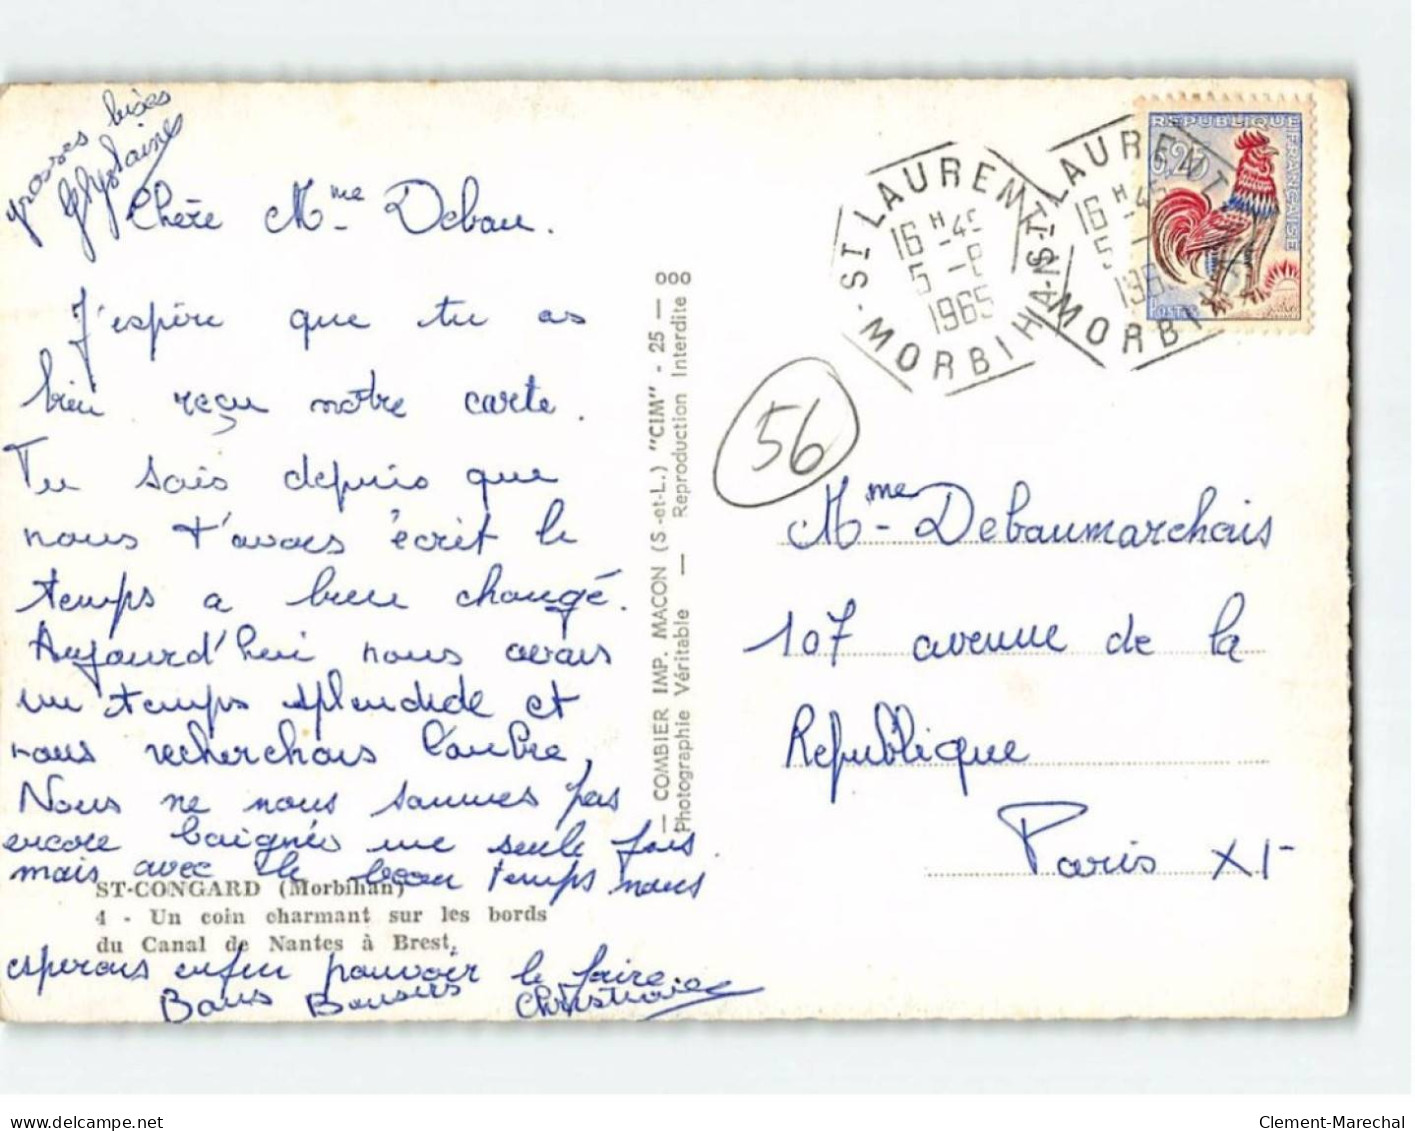 grosses bises
Ghyslaine
Chère Mme Debau.
J'espère que tu as
bien reçu notre carte.
Tu sais depuis que
nous t'avons écrit le
temps a bien changé.
Aujourd'hui nous avons
un temps splendide et
nous recherchons l'ombre,
Nous ne nous sommes pas
encore baignés une seule fois
mais avec le beau temps nous
ST-CONGARD (Morbihan)
4 - Un coin charmant sur les bords
du Canal de Nantes à Brest.
espérons enfin pouvoir le faire
Bons Baisers Christiane
— COMBIER IMP. MACON (S.-et-L.) "CIM" - 25 — 000
Photographie Véritable — Reproduction Interdite
ST LAURENT
16 H -45
5 -8
1965
MORBIHAN
ST LAURENT
16 H -45
5 -
196
MORBIHAN
REPUBLIQUE FRANÇAISE
0,25
POSTES
56
Mme Debaumarchais
107 avenue de la
République
Paris XI
Clement-Marechal
www.delcampe.net